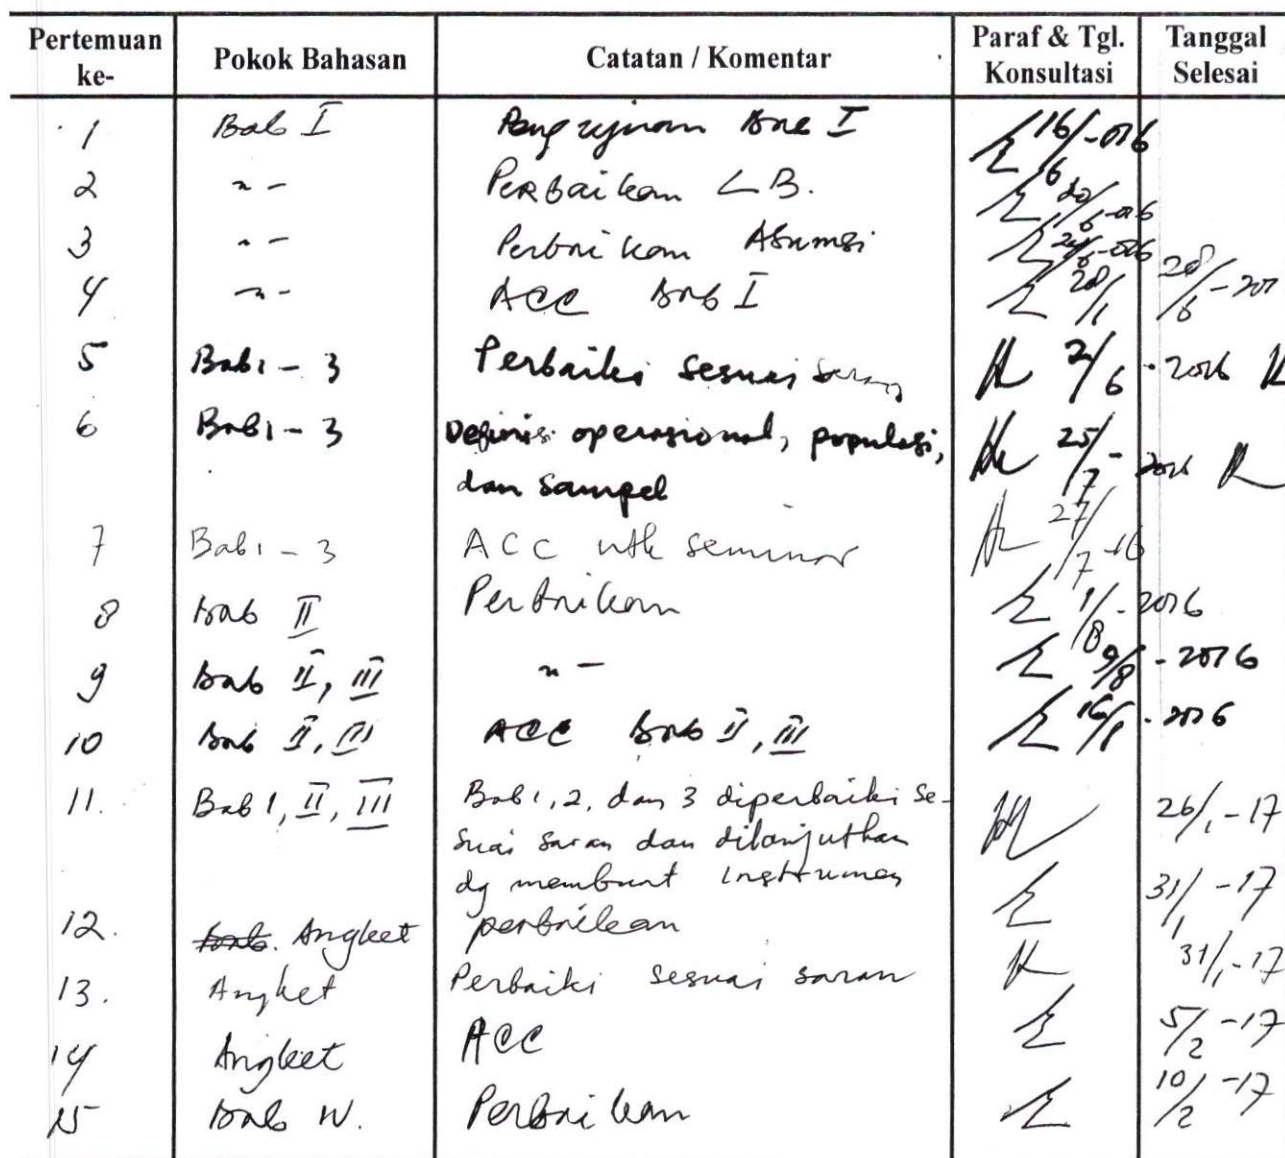 Pertemuan ke- Pokok Bahasan Catatan / Komentar Paraf & Tgl. Konsultasi Tanggal Selesai
1 Bab I Bab I 16/6-2016
2 "- Perbaikan LB. 20/6-2016
3 "- Perbaikan Asumsi
4 "- ACC Bab I 28/6
5 Bab 1 - 3 Perbaiki sesuai saran 2/6-2016
6 Bab 1 - 3 Definisi operasional, populasi, 25/7-2016
dan sampel
7 Bab 1 - 3 ACC utk seminar 27/7-16
8 Bab II Perbaikan 1/8-2016
9 Bab II, III "- 9/8-2016
10 Bab II, III ACC Bab II, III 16/8-2016
11. Bab 1, II, III Bab 1, 2, dan 3 diperbaiki se- 26/1-17
suai saran dan dilanjutkan
dg membuat instrumen
12. Angket perbaikan 31/1-17
13. Angket Perbaiki sesuai saran 31/1-17
14 Angket ACC 5/2-17
15 Bab IV. Perbaikan 10/2-17